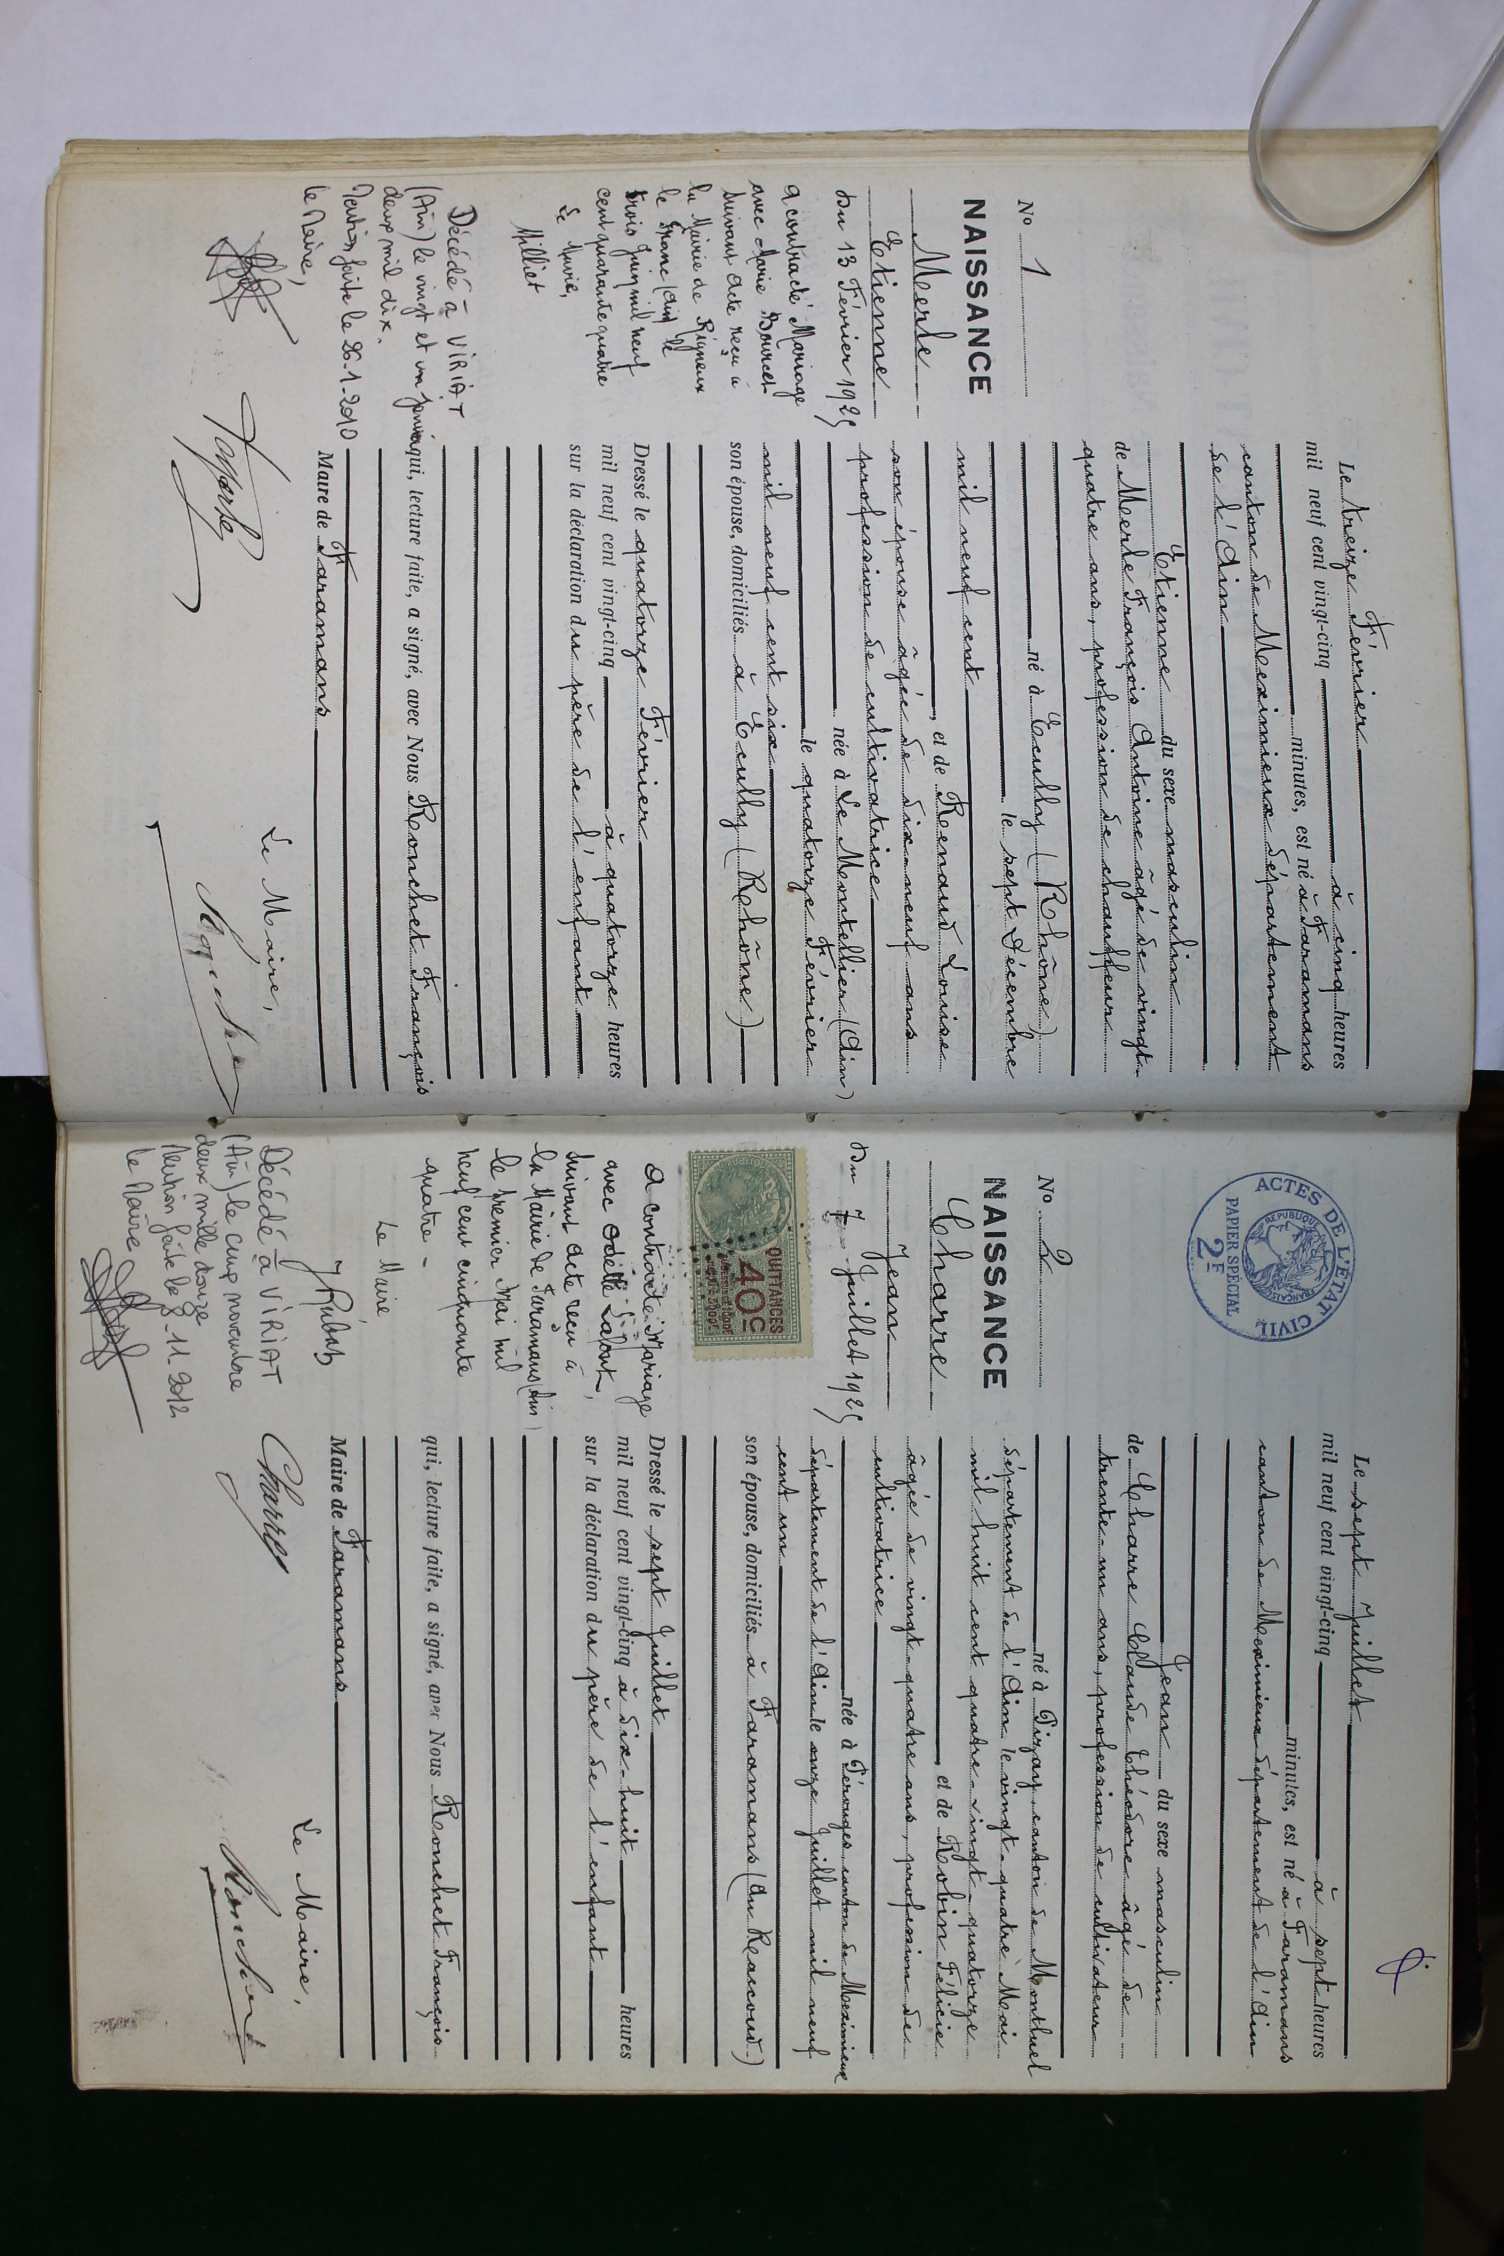 No 1
NAISSANCE
Merle
Etienne
du 13 Février 1925
a contracté Mariage
avec Marie Bourcet
suivant acte reçu à
la Mairie de Rigneux
le Franc (Ain) le
trois Juin mil neuf
cent quarante quatre
Le Maire,
Milliet
Décédé à VIRIAT
(Ain) le vingt et un janvier
deux mil dix.
Mention faite le 26-1-2010
le Maire,
Le treize Février
mil neuf cent vingt-cinq à cinq heures
minutes, est né à Faramans
canton de Meximieux département
de l'Ain
Etienne du sexe masculin
de Merle François Antoine âgé de vingt-
quatre ans, profession de chauffeur
né à Ecully (Rhône)
le sept Décembre
mil neuf cent
, et de Renaud Louise
son épouse âgée de dix-neuf ans
profession de cultivatrice
née à Le Montellier (Ain)
le quatorze Février
mil neuf cent six
son épouse, domiciliés à Ecully (Rhône)
Dressé le quatorze Février
mil neuf cent vingt-cinq à quatorze heures
sur la déclaration du père de l'enfant
qui, lecture faite, a signé, avec Nous Ronchet François
Maire de Faramans
Le Maire,
ACTES DE L'ÉTAT CIVIL
RÉPUBLIQUE FRANÇAISE
PAPIER SPÉCIAL
2F
No 2
NAISSANCE
Charre
Jean
du 7 Juillet 1925
QUITTANCES
40c
a contracté Mariage
avec Odette Labout,
suivant acte reçu à
la Mairie de Faramans (Ain)
le premier Mai mil
neuf cent cinquante
quatre -
Le Maire,
Décédé à VIRIAT
(Ain) le cinq novembre
deux mille douze
Mention faite le 8-11-2012
le Maire,
Le sept Juillet
mil neuf cent vingt-cinq à sept heures
minutes, est né à Faramans
canton de Meximieux département de l'Ain
Jean du sexe masculin
de Charre Claude Théodore âgé de
trente-un ans, profession de cultivateur
né à Pizay canton de Montluel
département de l'Ain le vingt-quatre Mai
mil huit cent quatre-vingt-quatorze
, et de Robin Félicie
âgée de vingt-quatre ans, profession de
cultivatrice
née à Pérouges canton de Meximieux
département de l'Ain le onze Juillet mil neuf
cent un
son épouse, domiciliés à Faramans (au Reacoud)
Dressé le sept Juillet
mil neuf cent vingt-cinq à dix-huit heures
sur la déclaration du père de l'enfant
qui, lecture faite, a signé, avec Nous Ronchet François
Maire de Faramans
Le Maire,
Charre